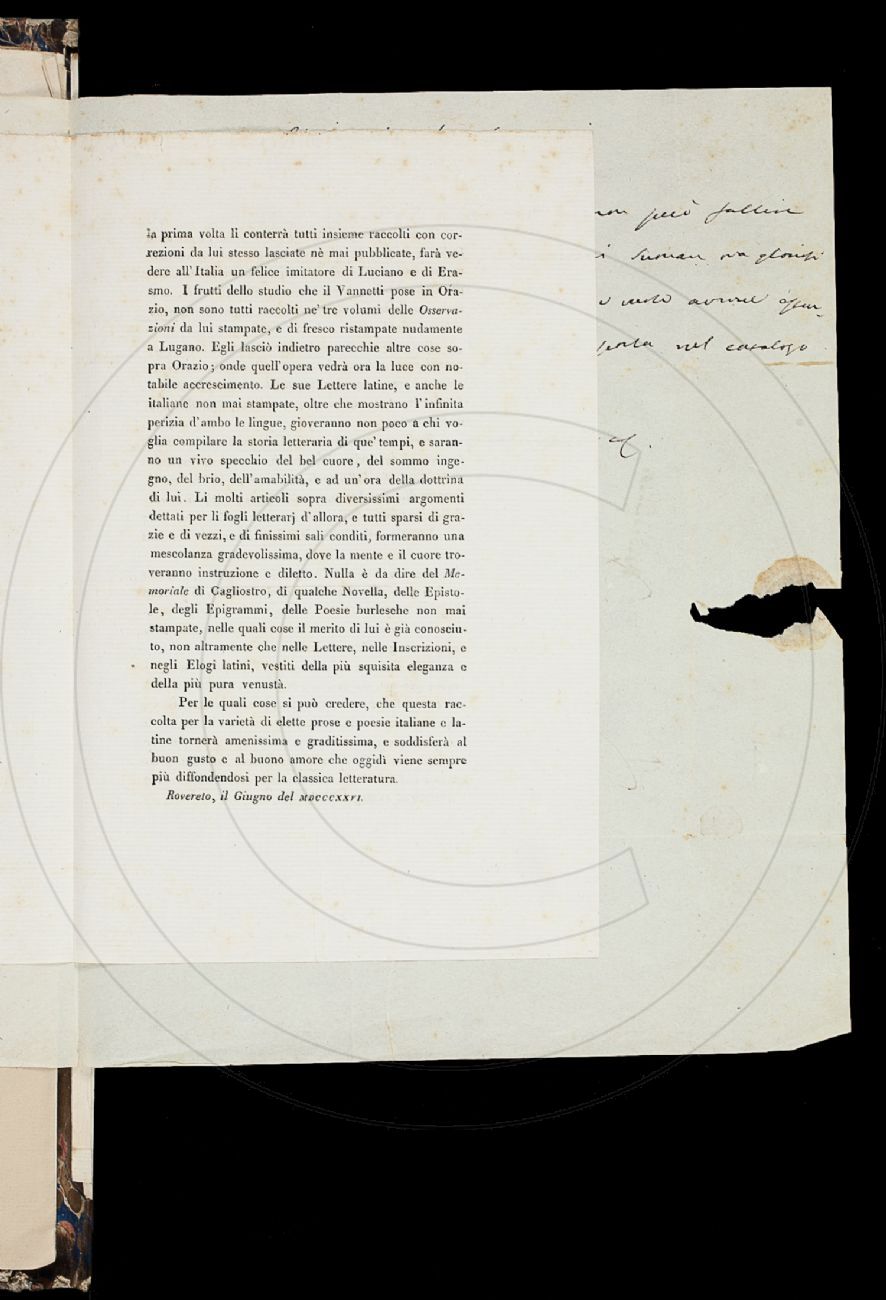 la prima volta lì conterrà tutti insieme raccolti con cor-
rezioni da lui stesso lasciate nè mai pubblicate, farà ve-
dere all'Italia un felice imitatore di Luciano e di Era-
smo. I frutti dello studio che il Vannetti pose in Ora-
zio, non sono tutti raccolti ne' tre volumi delle Osserva-
zioni da lui stampate, e di fresco ristampate nudamente
a Lugano. Egli lasciò indietro parecchie altre cose so-
pra Orazio; onde quell'opera vedrà ora la luce con no-
tabile accrescimento. Le sue Lettere latine, e anche le
italiane non mai stampate, oltre che mostrano l'infinita
perizia d'ambo le lingue, gioveranno non poco a chi vo-
glia compilare la storia letteraria di que' tempi, e saran-
no un vivo specchio del bel cuore, del sommo inge-
gno, del brio, dell'amabilità, e ad un'ora della dottrina
di lui. Li molti articoli sopra diversissimi argomenti
dettati per li fogli letterarj d'allora, e tutti sparsi di gra-
zie e di vezzi, e di finissimi sali conditi, formeranno una
mescolanza gradevolissima, dove la mente e il cuore tro-
veranno instruzione e diletto. Nulla è da dire del Me-
moriale di Cagliostro, di qualche Novella, delle Episto-
le, degli Epigrammi, delle Poesie burlesche non mai
stampate, nelle quali cose il merito di lui è già conosciu-
to, non altramente che nelle Lettere, nelle Inscrizioni, e
negli Elogi latini, vestiti della più squisita eleganza e
della più pura venustà.
Per le quali cose si può credere, che questa rac-
colta per la varietà di elette prose e poesie italiane e la-
tine tornerà amenissima e graditissima, e soddisferà al
buon gusto e al buono amore che oggidì viene sempre
più diffondendosi per la classica letteratura.
Rovereto, il Giugno del MDCCCXXVI.
può fallire
nel catalogo